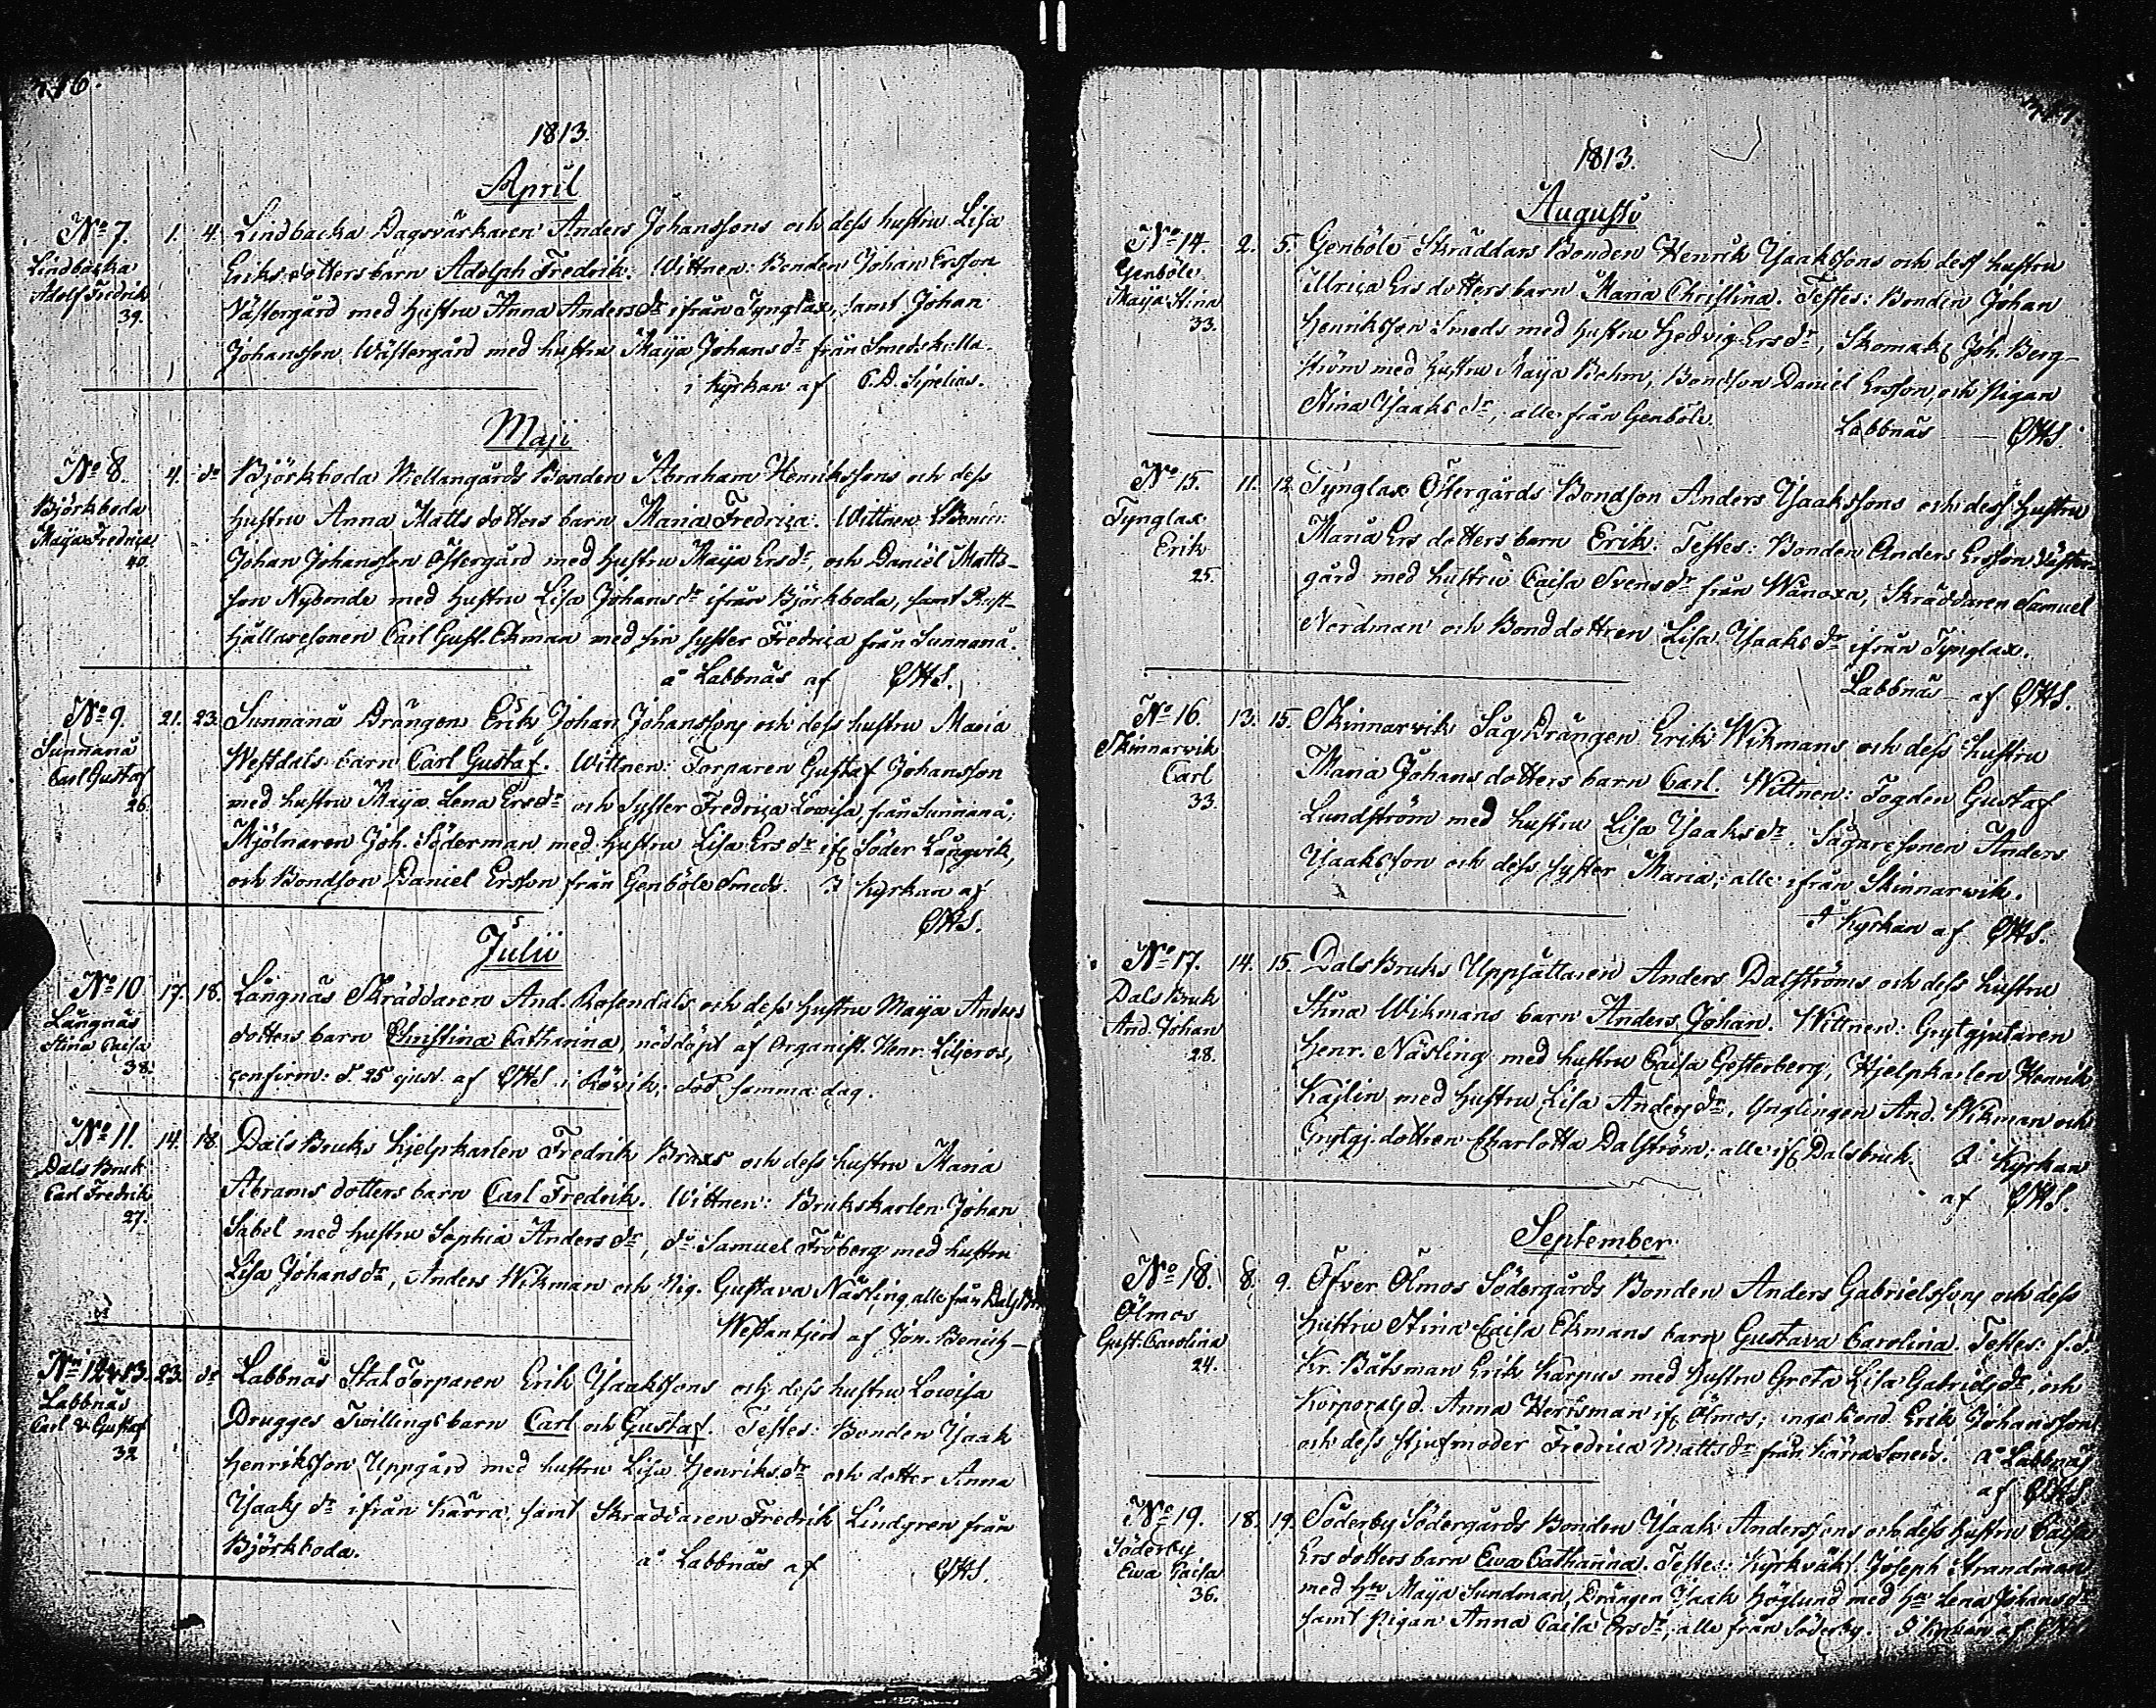 1813.
April
No 7. 1. 4. Lindbacka Dagsvärkaren Anders Johanssons och dess hustru Lisa
Lindbacka Eriksdotters barn Adolph Fredrik. Wittnen: Bonden Johan Ersson
Adolf Fredrik Västergård med hustru Anna Andersdr ifrån Tynglax, samt Johan
39. Johansson Wästergård med hustru Maija Johansdr från Smedskulla.
i Kyrkan af C.D. Sirelius.
Maji
No 8. 4. do Björkboda Mellangårds Bonden Abraham Henrikssons och dess
Björkboda hustru Anna Mattsdotters barn Maria Fredrica. Wittnen: Bonden
Maija Fredrica Johan Johansson Östergård med hustru Maija Ersdr, och Daniel Matts-
40. son Nybonde med hustru Lisa Johansdr ifrån Björkboda, samt Rust-
hållaresonen Carl Gust. Ekman med sin syster Fredrica från Sunnanå.
å Labbnäs af
No 9. 21. 23. Sunnanå Drängen Erik Johan Johanssons och dess hustru Maria
Sunnanå Westdals barn Carl Gustaf. Wittnen: Torparen Gustaf Johansson
Carl Gustaf med hustru Maija Lena Ersdr och syster Fredrica Lowisa, från Sunnanå;
26. Mjölnaren Joh. Söderman med hustru Lisa Ersdr if. Söder Långvik,
och Bondson Daniel Ersson från Genböle Smeds. I Kyrkan af
Julii
No 10 17. 18. Långnäs Skräddaren And. Rosendals och dess hustru Maija Anders
Långnäs dotters barn Christina Catharina, nöddöpt af Organist. Henr. Liljeros,
Stina Caisa confirm: d. 25 ejusd. af i Rövik; död samma dag.
38.
No 11. 14. 18. Dals Bruks Hjelpkarlen Fredrik Braxs och dess hustru Maria
Dals Bruk Abrams dotters barn Carl Fredrik. Wittnen: Brukskarlen Johan
Carl Fredrik Sabel med hustru Sophia Andersdr, do Samuel Fröberg med hustru
27. Lisa Johansdr, Anders Wikman och Pig. Gustava Näsling, alle från
Westanfjerd af Jon.
No 12 & 13. 23. do Labbnäs StatTorparen Erik Isaakssons och dess hustru Lowisa
Labbnäs Drugges Twillingsbarn Carl och Gustaf. Testes: Bonden Isaak
Carl & Gustaf Henriksson Uppgård med hustru Lisa Henriksdr och dotter Anna
32 Isaaks dr ifrån Kärra, samt Skräddaren Fredrik Lindgren från
Björkboda. å Labbnäs af
1813.
Augusti
No 14. 2. 5. Genböle Skräddars Bonden Henrik Isaakssons och dess hustru
Genböle Ulrica Ers dotters barn Maria Christina. Testes: Bonden Johan
Maija Stina Henriksson Smeds med hustru Hedvig Ersdr, Skomak. Joh. Berg-
33. ström med hustru Maija Behm, Bondson Daniel Ersson, och Pigan
Stina Isaaks dr, alle från Genböle.
Labbnäs
No 15. 11. 12. Tynglax Östergårds Bondson Anders Isaakssons och dess hustru
Tynglax Maria Ers dotters barn Erik. Testes: Bonden Anders Ersson Väster-
Erik gård med hustru Caisa Svensdr från Wånoxa, Skräddaren Samuel
25. Nordman och Bonddottren Lisa Isaaks dr ifrån Tynglax.
Labbnäs af
No 16. 13. 15. Skinnarvik SågDrängen Erik Wikmans och dess hustru
Skinnarvik Maria Johans dotters barn Carl. Wittnen: Fogden Gustaf
Carl Lundström med hustru Lisa Isaaksdr. Sågaresonen Anders
33. Isaaksson och dess syster Maria; alle ifrån Skinnarwik.
I Kyrkan af
No 17. 14. 15. Dals Bruks Uppsättaren Anders Dalströms och dess hustru
Dals Bruk Stina Wikmans barn Anders Johan. Wittnen: Grytgjutaren
And. Johan Henr. Näsling med hustru Caisa Gesterberg, Hjelpkarlen Henrik
28. Kajlin med hustru Lisa Andersdr, Ynglingen And. Wikman och
Grytgj. dottren Charlotta Dalström; alle if. Dalsbruk. I Kyrkan
af
September
No 18. 8. 9. Öfver Ölmos Södergårds Bonden Anders Gabrielssons och dess
Ölmos hustru Stina Caisa Ekmans barn Gustava Carolina. Testes: f.d.
Gust. Carolina Kr. Båtsman Erik Karpus med hustru Greta Lisa Gabrielsdr, och
24. Korporalsd. Anna Hertsman if. Ölmos; unga Bond. Erik Johansson
och dess stjufmoder Fredrica Mattsdr från Kärra Smeds. å Labbnäs
af
No 19. 18. 19. Söderby Södergårds Bonden Isaak Anderssons och dess hustru Caisa
Söderby Ers dotters barn Ewa Catharina. Testes: Kyrkväkt. Joseph Strandman
Ewa Caisa med Hu Maija Sundman, Drängen Isaak Höglund med Hu Lena Johansdr
36. samt Pigan Anna Caisa Ersdr, alle från Söderby. I Kyrkan af